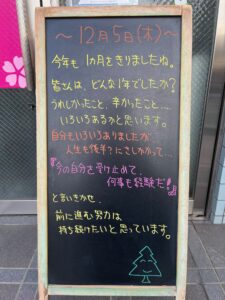 〜12月5日(木)〜
今年も1カ月をきりましたね。
皆さんは、どんな1年でしたか?
うれしかったこと、辛かったこと…
いろいろあるかと思います。
自分もいろいろありましたが、
人生も後半?にさしかかって…
『今の自分を受け止めて、
何事も経験だ!!』
と言いきかせ、
前に進む努力は
持ち続けたいと思っています。